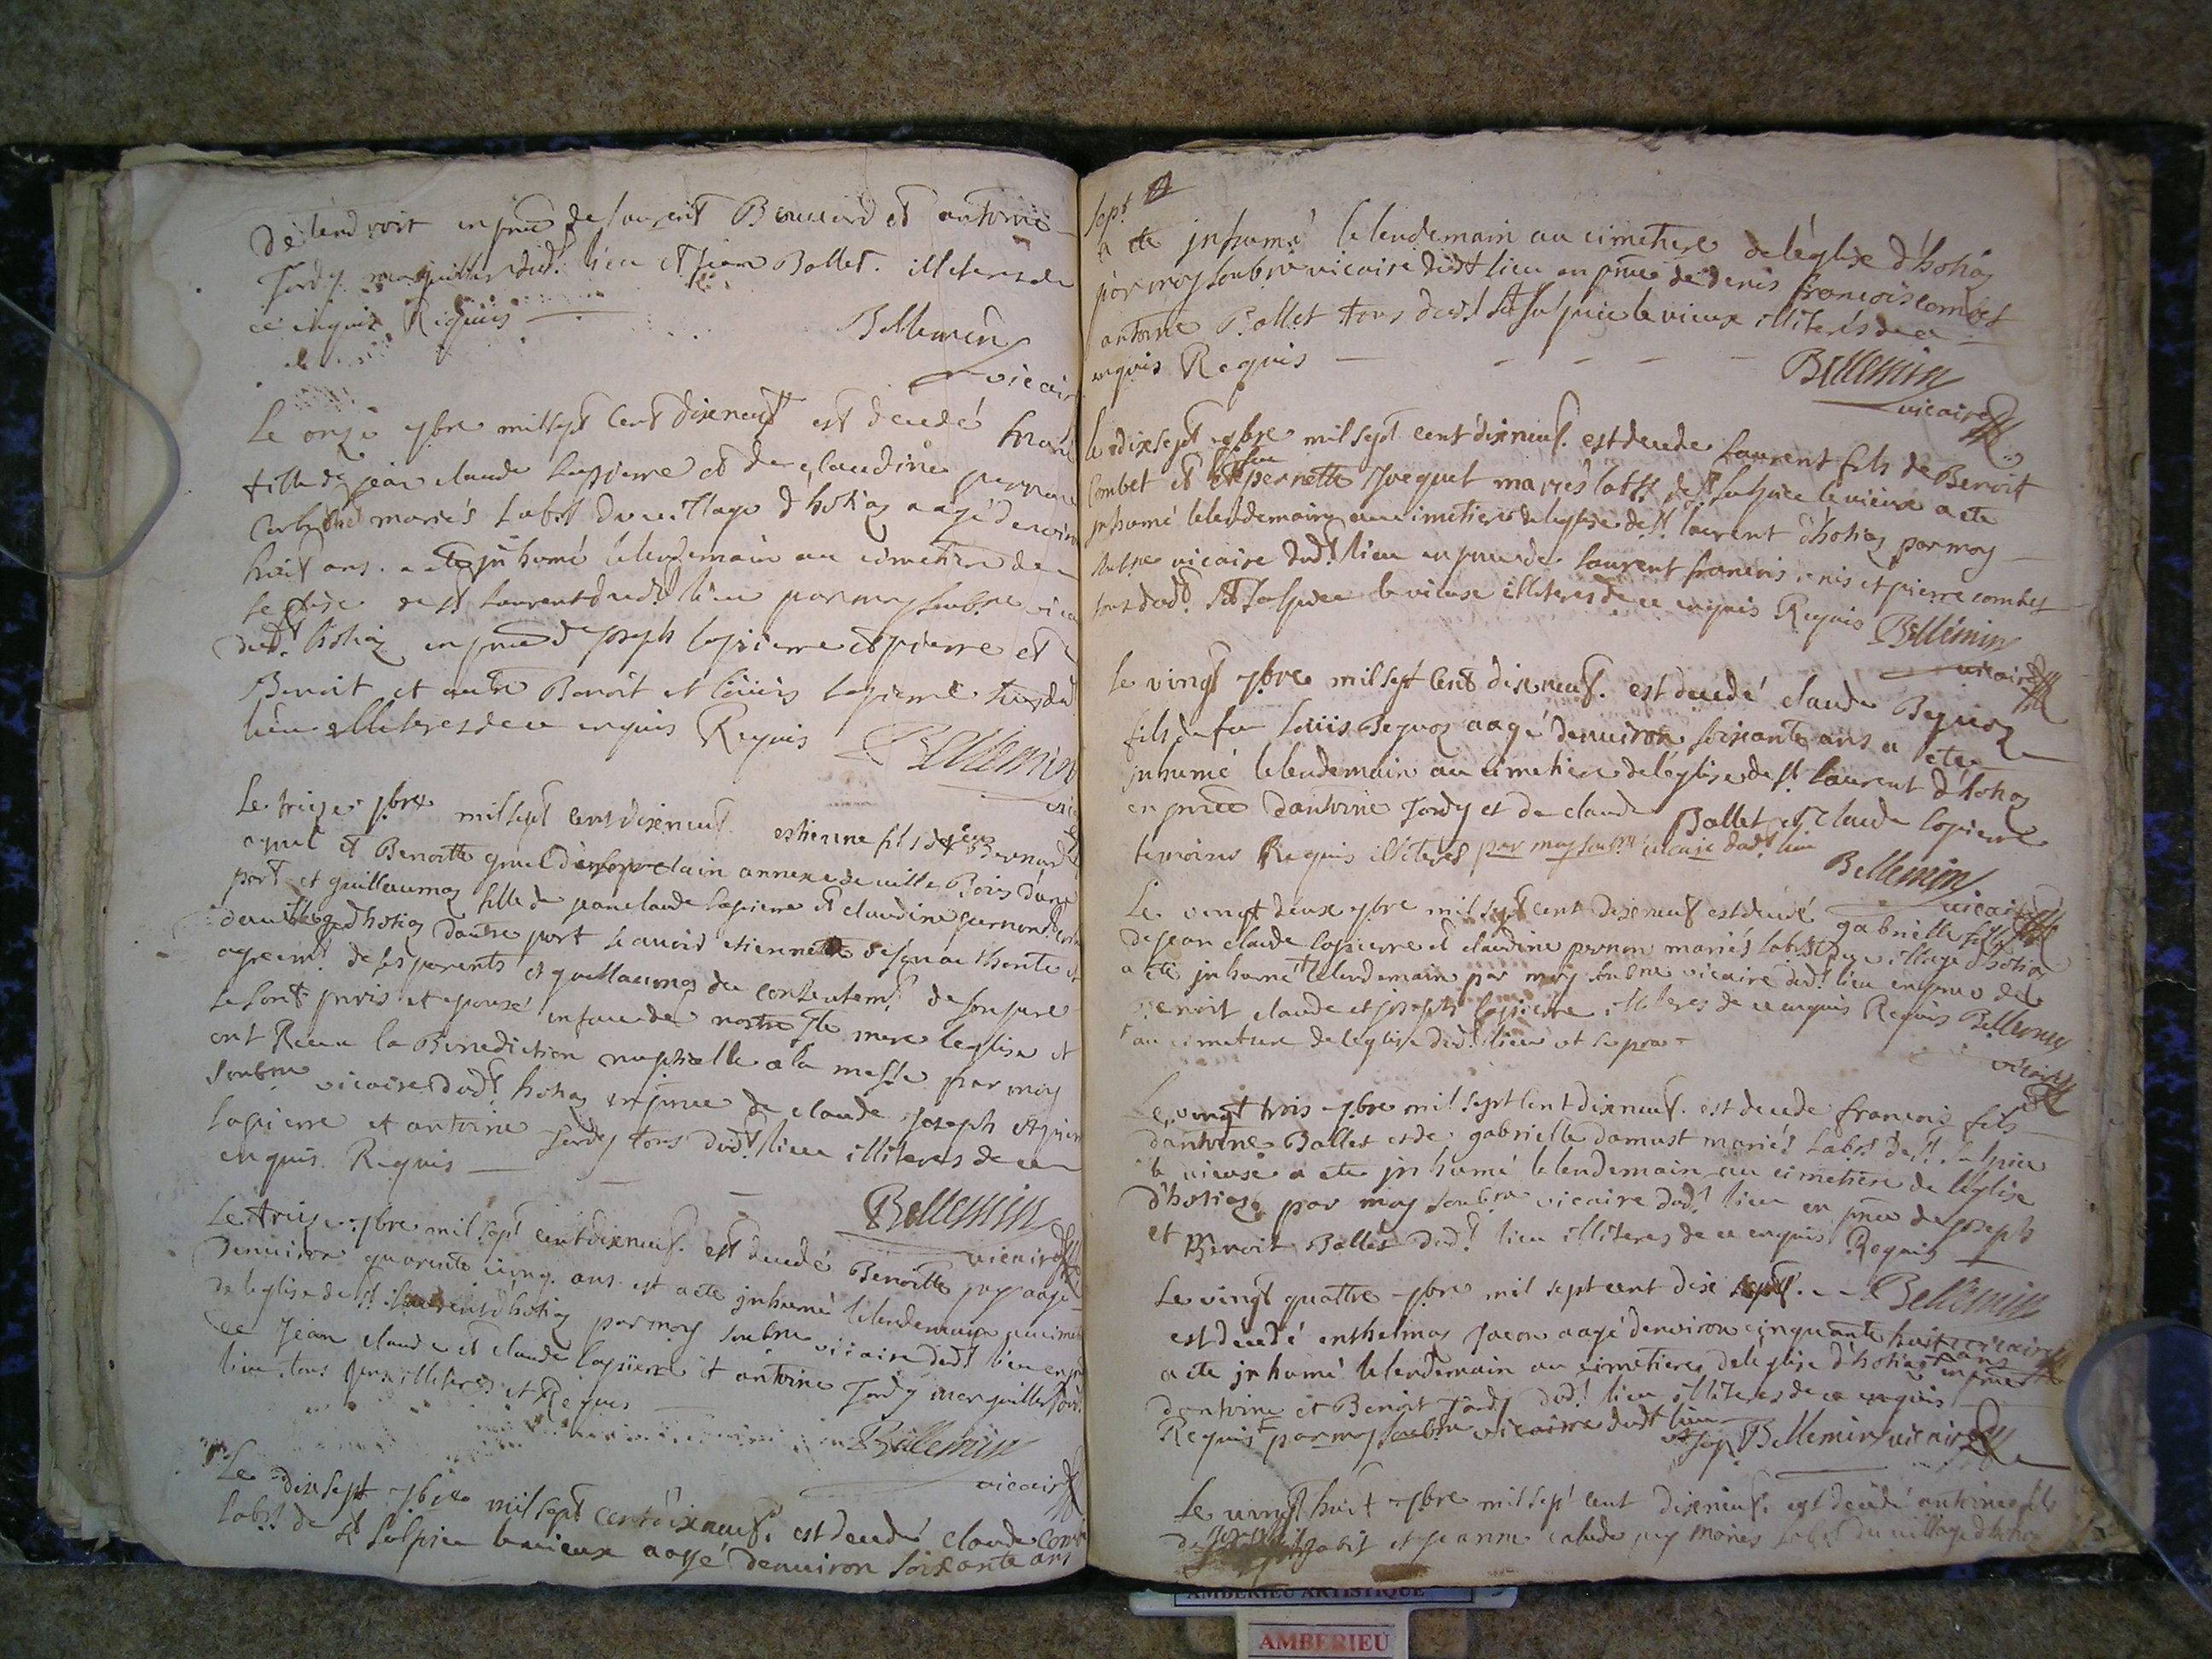 de lendroit en pnce de laurent et antoine
Jordy marguillier dudt. lieu et Jean Ballet. illiteres de
ce enquis Requis
Bellemin
vicaire
Le onze 7bre mil sept cent dixneuf est decedé
fille de jean claude Lapierre et de claudine pernon
mariés labrs du village d'hostiaz aagé denviron
huit ans. a ete inhumé le lendemain au cimetiere de
leglise de st laurent dudt lieu par moy soubne vicaire
dudt. hostiaz en pnce de joseph lapierre et pierre et
Benoit et autre Benoit et Louis Lapierre tous dud
lieu illiteres de ce enquis Requis Bellemin
Le treize 7bre mil sept cent dixneuf. estienne fils de Bernard
et Benoitte annexe de ville Bois d'une
part et guillaumaz fille de jean claude lapierre et claudine pernon
du village d'hostiaz dautre part
agreemt. de ses parents et guillaumaz du consentemt. de son pere
se sont pris et epousé en face de nostre ste mere leglise et
ont Receu la Benediction nuptialle a la messe par moy
soubne vicaire dudt. hostiaz en pnce de claude Joseph et pierre
Lapierre et antoine Jordy tous dudt. lieu illiteres de ce
enquis Requis
Bellemin
vicaire
Le treize 7bre mil sept cent dixneuf. est decedé Benoitte aagé
denviron quarente cinq ans est a ete inhumé le lendemain au cimet
de leglise de st. laurent d'hostiaz par moy soubne vicaire dudt lieu en pn
de Jean claude et claude lapierre et antoine Jordy marguillier
lieu tous illiteres et Requis
Bellemin
vicaire
Le dix sept 7bre mil sept cent dixneuf. est decedé claude combet
labrs. de st Sulpice le vieux aagé denviron soixante ans
sept
a ete inhumé le lendemain au cimetiere de l'eglise d'hostiaz
par moy soubne vicaire dudt lieu en pnce de denis francois combet
antoine Ballet tous dudt st sulpice le vieux illiterés de ce
enquis Requis
Bellemin
vicaire
Le dix sept 7bre mil sept cent dixneuf. est decede Laurent fils de Benoit
Combet et de feu pernette mariés labrs de st sulpice le vieux a ete
inhumé le lendemain au cimetiere de leglise de st. laurent d'hostiaz par moy
soubne vicaire dudt. lieu en pnce de laurent francois denis et pierre combet
tous dudt. st sulpice le vieux illiteres de ce enquis Requis Bellemin
vicaire
Le vingt 7bre mil sept cent dixneuf. est decedé claude
fils de feu Louis aagé denviron soixante ans a ete
inhumé le lendemain au cimetiere de l'eglise de st. laurent d'hostiaz
en pnce dantoine Jordy et de claude Ballet et claude lapierre
temoins Requis illiteres par moy soubne vicaire dudt. lieu
Bellemin
vicaire
Le vingt deux 7bre mil sept cent dixneuf est decedé gabrielle fille
de jean claude lapierre et claudine pernon mariés labrs du village d'hostiaz
a ete inhumé le lendemain par moy soubne vicaire dudt. lieu en pnce de
Benoit claude et joseph lapierre illiteres de ce enquis Requis Bellemin
au cimetiere de leglise dudt. lieu
vicaire
Le vingt trois 7bre mil sept cent dixneuf. est decede francois fils
dantoine Ballet et de gabrielle mariés labrs de st. sulpice
le vieux a ete inhumé le lendemain au cimetiere de leglise
d'hostiaz par moy soubne vicaire dudt. lieu en pnce de joseph
et Benoit Ballet dudt. lieu illiteres de ce enquis Requis
Le vingt quattre 7bre mil sept cent dix Bellemin
vicaire
est decedé enthelmaz aagé denviron cinquante huit ans
a ete inhumé le lendemain au cimetiere de leglise d'hostiaz en pnce
dantoine et Benoit Jordy dudt. lieu illiteres de ce enquis
Requis par moy soubne vicaire dudt lieu
Bellemin vicaire
Le vingt huit 7bre mil sept cent dixneuf. est decédé antoine fils
de et jeanne mariés labrs du village d'hostiaz
AMBERIEU ARTISTIQUE
AMBERIEU